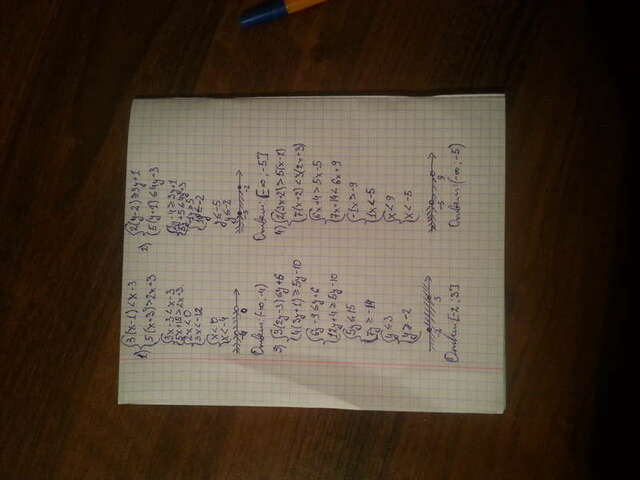 1) 3(x-1)<x-3
5(x+3)>2x+3
3x-3<x-3
5x+15>2x+3
2x<0
3x<-12
x<0
x<-4
-4 0
Ответ: (-∞, -4)
2) 2(y-2)≥3y+1
5(y+1)≤4y+3
2y-4≥3y+1
5y+5≤4y+3
1y≤-2
y≤-5
y≤-2
-5 -2
Ответ: [-∞, -5]
3) 3(2y-3)≤y+6
4(3y+1)≥5y-10
6y-9≤y+6
12y+4≥5y-10
5y≤15
7y≥-14
y≤3
y≥-2
-2 3
Ответ [-2; 3]
4) 2(3x+2)>5(x-1)
7(x+2)<3(2x+3)
6x+4>5x-5
7x+14<6x+9
-1x>-9
1x<-5
x<9
x<-5
-5 9
Ответ: (-∞; -5)